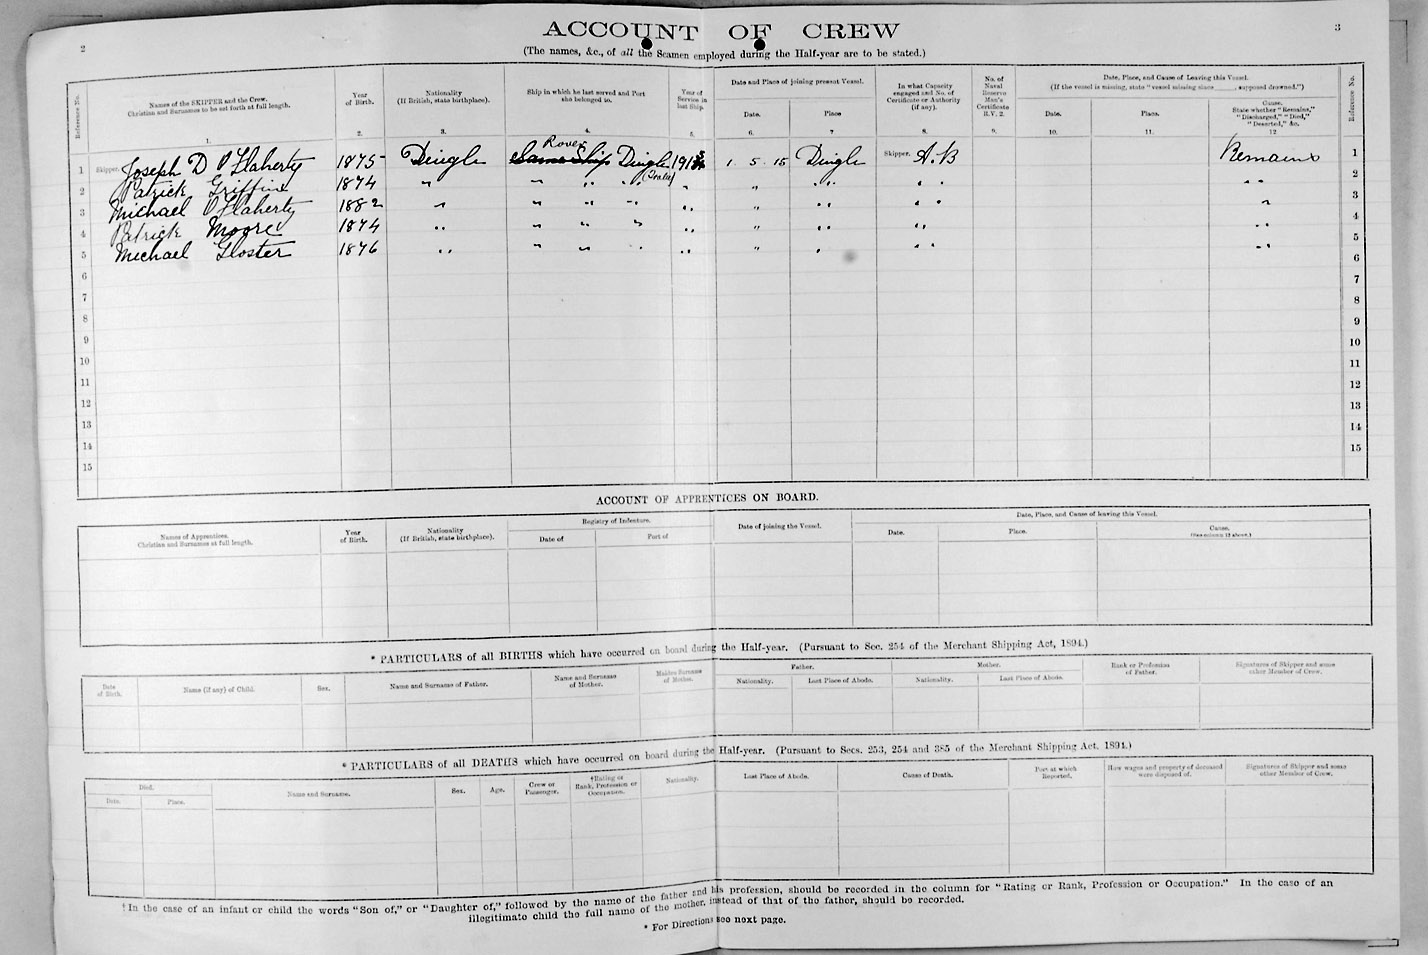 2
ACCOUNT OF CREW
3
(The names, &c., of all the Seamen employed during the Half-year are to be stated.)
Reference No.
Names of the SKIPPER and the Crew.
Christian and Surnames to be set forth at full length.
1.
Year
of Birth.
2.
Nationality
(If British, state birthplace).
3.
Ship in which he last served and Port
she belonged to.
4.
Year of
Service in
last Ship.
5.
Date and Place of joining present Vessel.
Date.
6.
Place
7.
In what Capacity
engaged and No. of
Certificate or Authority
(if any).
8.
No. of
Naval
Reserve
Man's
Certificate
R.V. 2.
9.
Date, Place, and Cause of Leaving this Vessel.
(If the vessel is missing, state "vessel missing since ______, supposed drowned.")
Date.
10.
Place.
11.
Cause.
State whether "Remains,"
"Discharged," "Died,"
"Deserted," &c.
12
Reference No.
Rover
1 Skipper. Joseph D O'Flaherty 1875 Dingle Same Ship Dingle 191 1. 5. 15 Dingle Skipper. A.B Remains 1
(Tralee)
2 Patrick Griffin 1874 " " " " " " " " " " " " 2
3 Michael O'Flaherty 1882 " " " " " " " " " " 3
4 Patrick Moore 1874 " " " " " " " " " 4
5 Michael Gloster 1876 " " " " " " " " " 5
6 6
7 7
8 8
9 9
10 10
11 11
12 12
13 13
14 14
15 15
ACCOUNT OF APPRENTICES ON BOARD.
Names of Apprentices.
Christian and Surnames at full length.
Year
of Birth.
Nationality
(If British, state birthplace).
Registry of Indenture.
Date of
Port of
Date of joining the Vessel.
Date, Place, and Cause of leaving this Vessel.
Date.
Place.
Cause.
(See column 12 above.)
* PARTICULARS of all BIRTHS which have occurred on board during the Half-year. (Pursuant to Sec. 254 of the Merchant Shipping Act, 1894.)
Date
of Birth.
Name (if any) of Child.
Sex.
Name and Surname of Father.
Name and Surname
of Mother.
Maiden Surname
of Mother.
Father.
Nationality.
Last Place of Abode.
Mother.
Nationality.
Last Place of Abode.
Rank or Profession
of Father.
Signatures of Skipper and some
other Member of Crew.
* PARTICULARS of all DEATHS which have occurred on board during the Half-year. (Pursuant to Secs. 253, 254 and 385 of the Merchant Shipping Act, 1894.)
Died.
Date.
Place.
Name and Surname.
Sex.
Age.
Crew or
Passenger.
†Rating or
Rank, Profession or
Occupation.
Nationality.
Last Place of Abode.
Cause of Death.
Port at which
Reported.
How wages and property of deceased
were disposed of.
Signatures of Skipper and some
other Member of Crew.
†In the case of an infant or child the words "Son of," or "Daughter of," followed by the name of the father and his profession, should be recorded in the column for "Rating or Rank, Profession or Occupation." In the case of an
illegitimate child the full name of the mother, instead of that of the father, should be recorded.
* For Directions see next page.